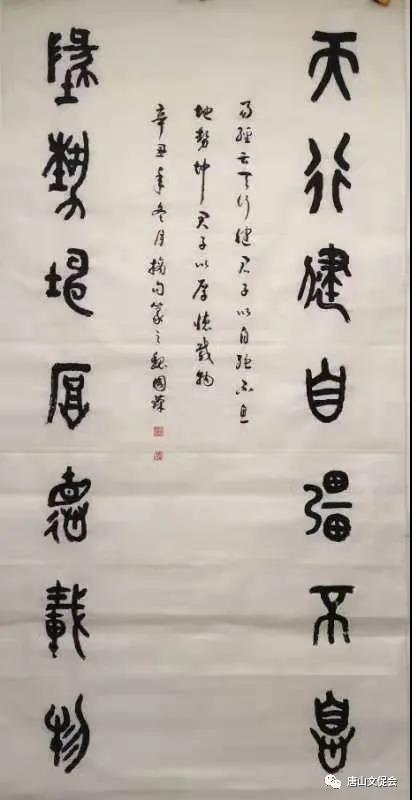 天行健自彊不息
易經云天行健君子以自強不息
地勢坤君子以厚德載物
辛丑年冬月摘句篆之魏國
墬勢坤厚德載物
唐山文促会